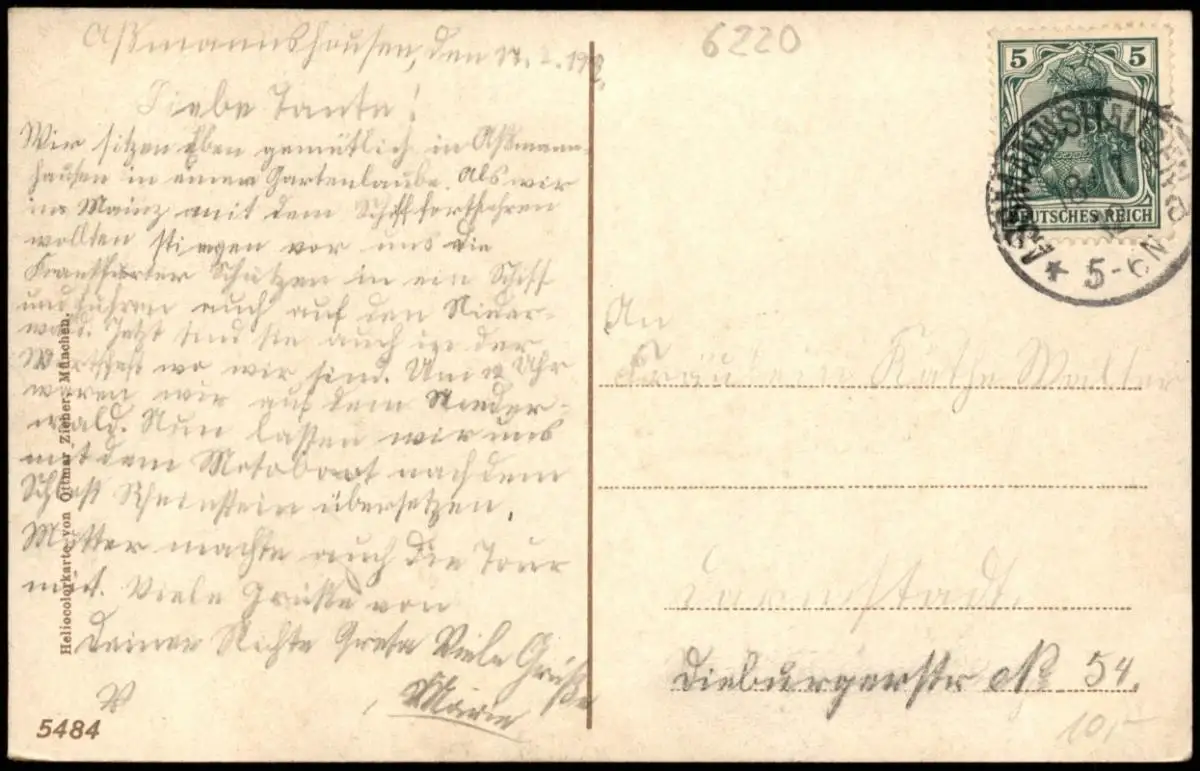 Aßmannshausen, den 17. 7. 1912
Liebe Tante!
Wir sitzen eben gemütlich in Aßmanns-
hausen in einer Gartenlaube. Als wir
in Mainz mit dem Schiff fortfahren
wollten stiegen vor uns die
Frankfurter Schützen in ein Schiff
und fuhren auch auf den Nieder-
wald. Jetzt sind sie auch in der
Wirtschaft wo wir sind. Um Uhr
waren wir auf dem Nieder-
wald. Nun lassen wir uns
mit dem Motoboot nach dem
Schloß Rheinstein übersetzen.
Mutter machte auch die Tour
mit. Viele Grüße von
deiner Nichte Greta Viele Grüße
Marie
Heliocolorkarte von Ottmar Zieher, München.
5484
6220
5 5
DEUTSCHES REICH
ASSMANNSHAUSEN
* 5-6N
An
Fräulein Käthe Walter
Darmstadt.
Dieburgerstr No 54.
10,-